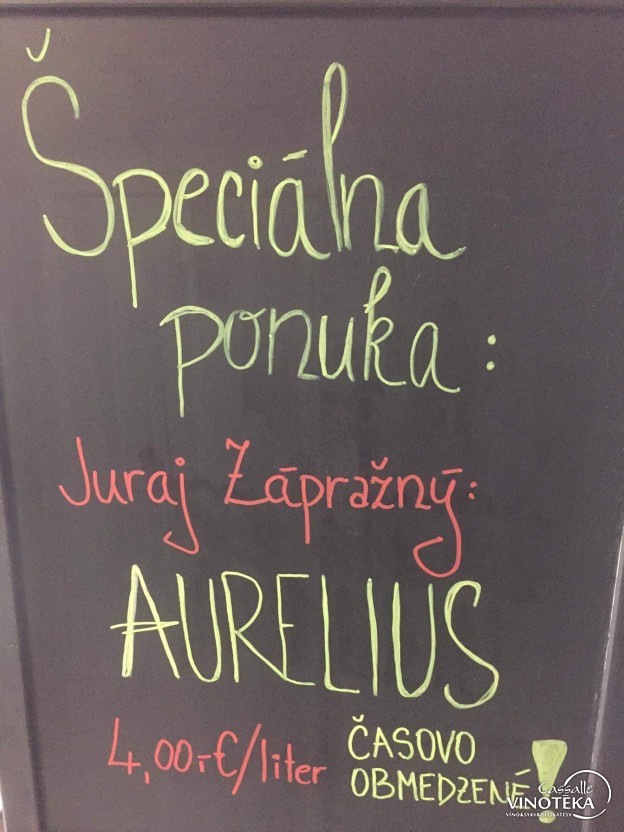 Špeciálna
ponuka:
Juraj Zápražný:
AURELIUS
4,00.-€/liter
ČASOVO
OBMEDZENÉ!
Cassalle
VINOTÉKA